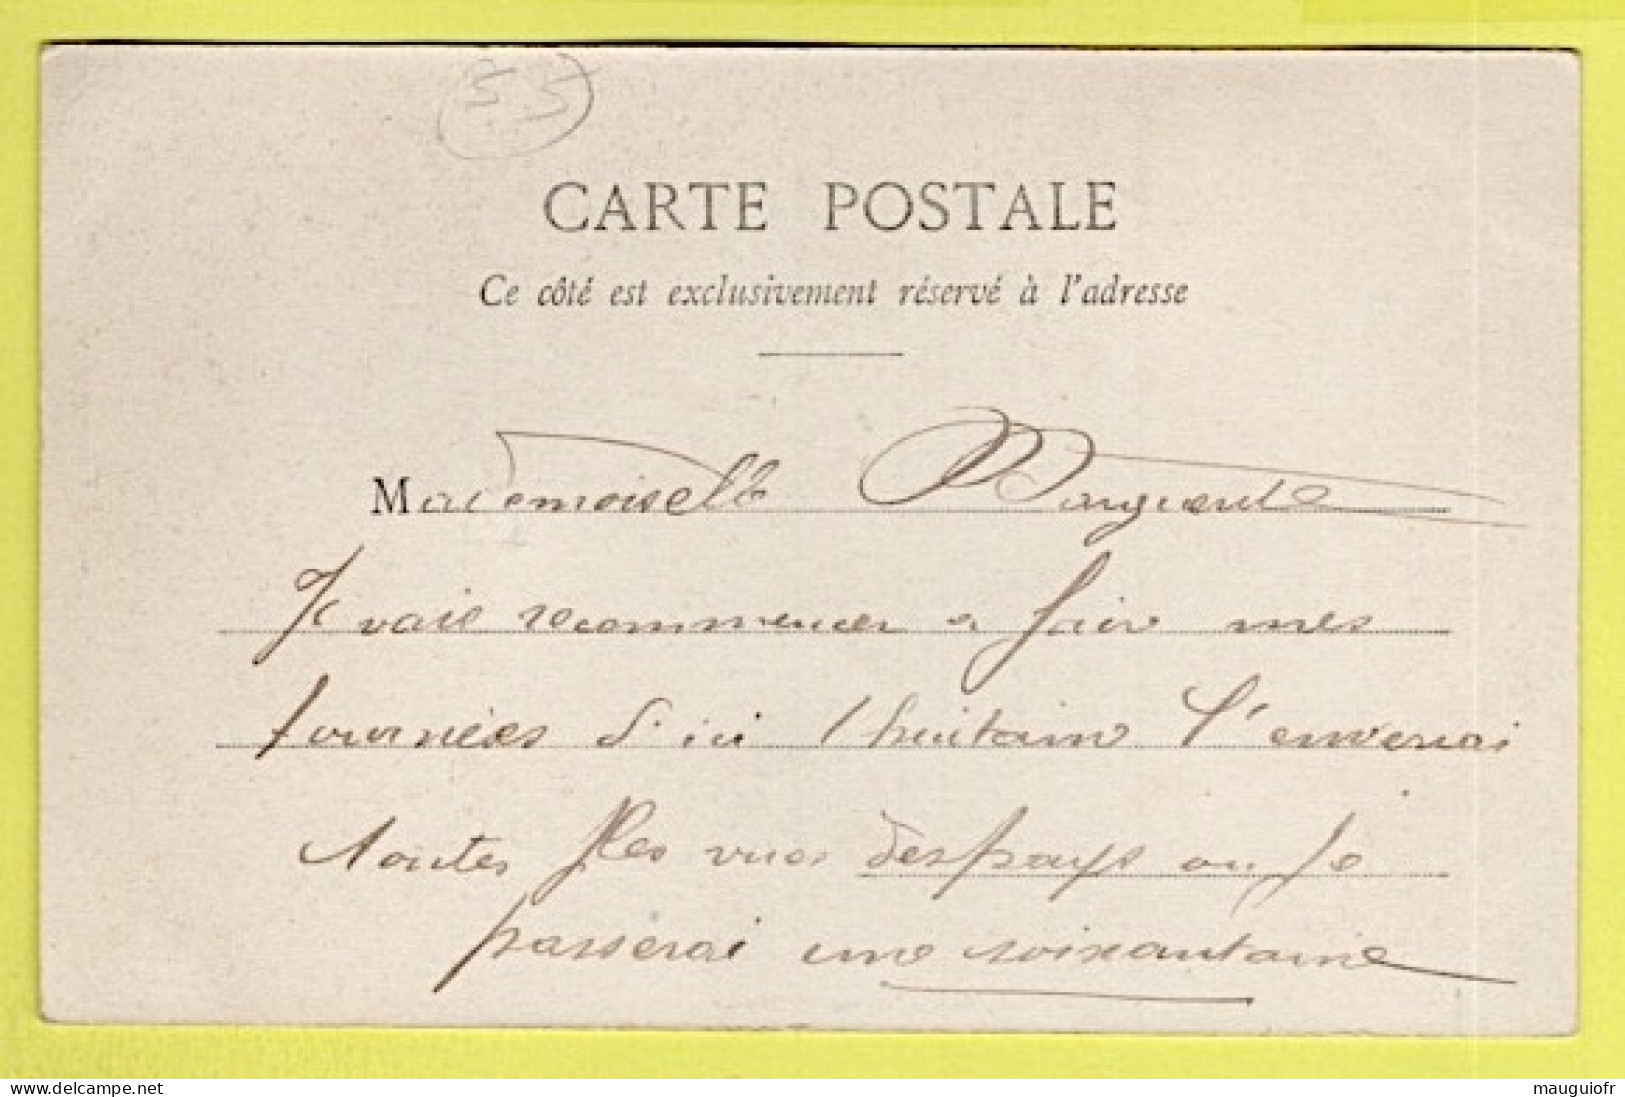 55
CARTE POSTALE
Ce côté est exclusivement réservé à l'adresse
Mademoiselle Marguerite
Je vais recommencer a faire mes
tournées d'ici 1 huitaine t'enverrai
toutes les vues des pays ou je
passerai une soixantaine
delcampe.net
mauguiofr